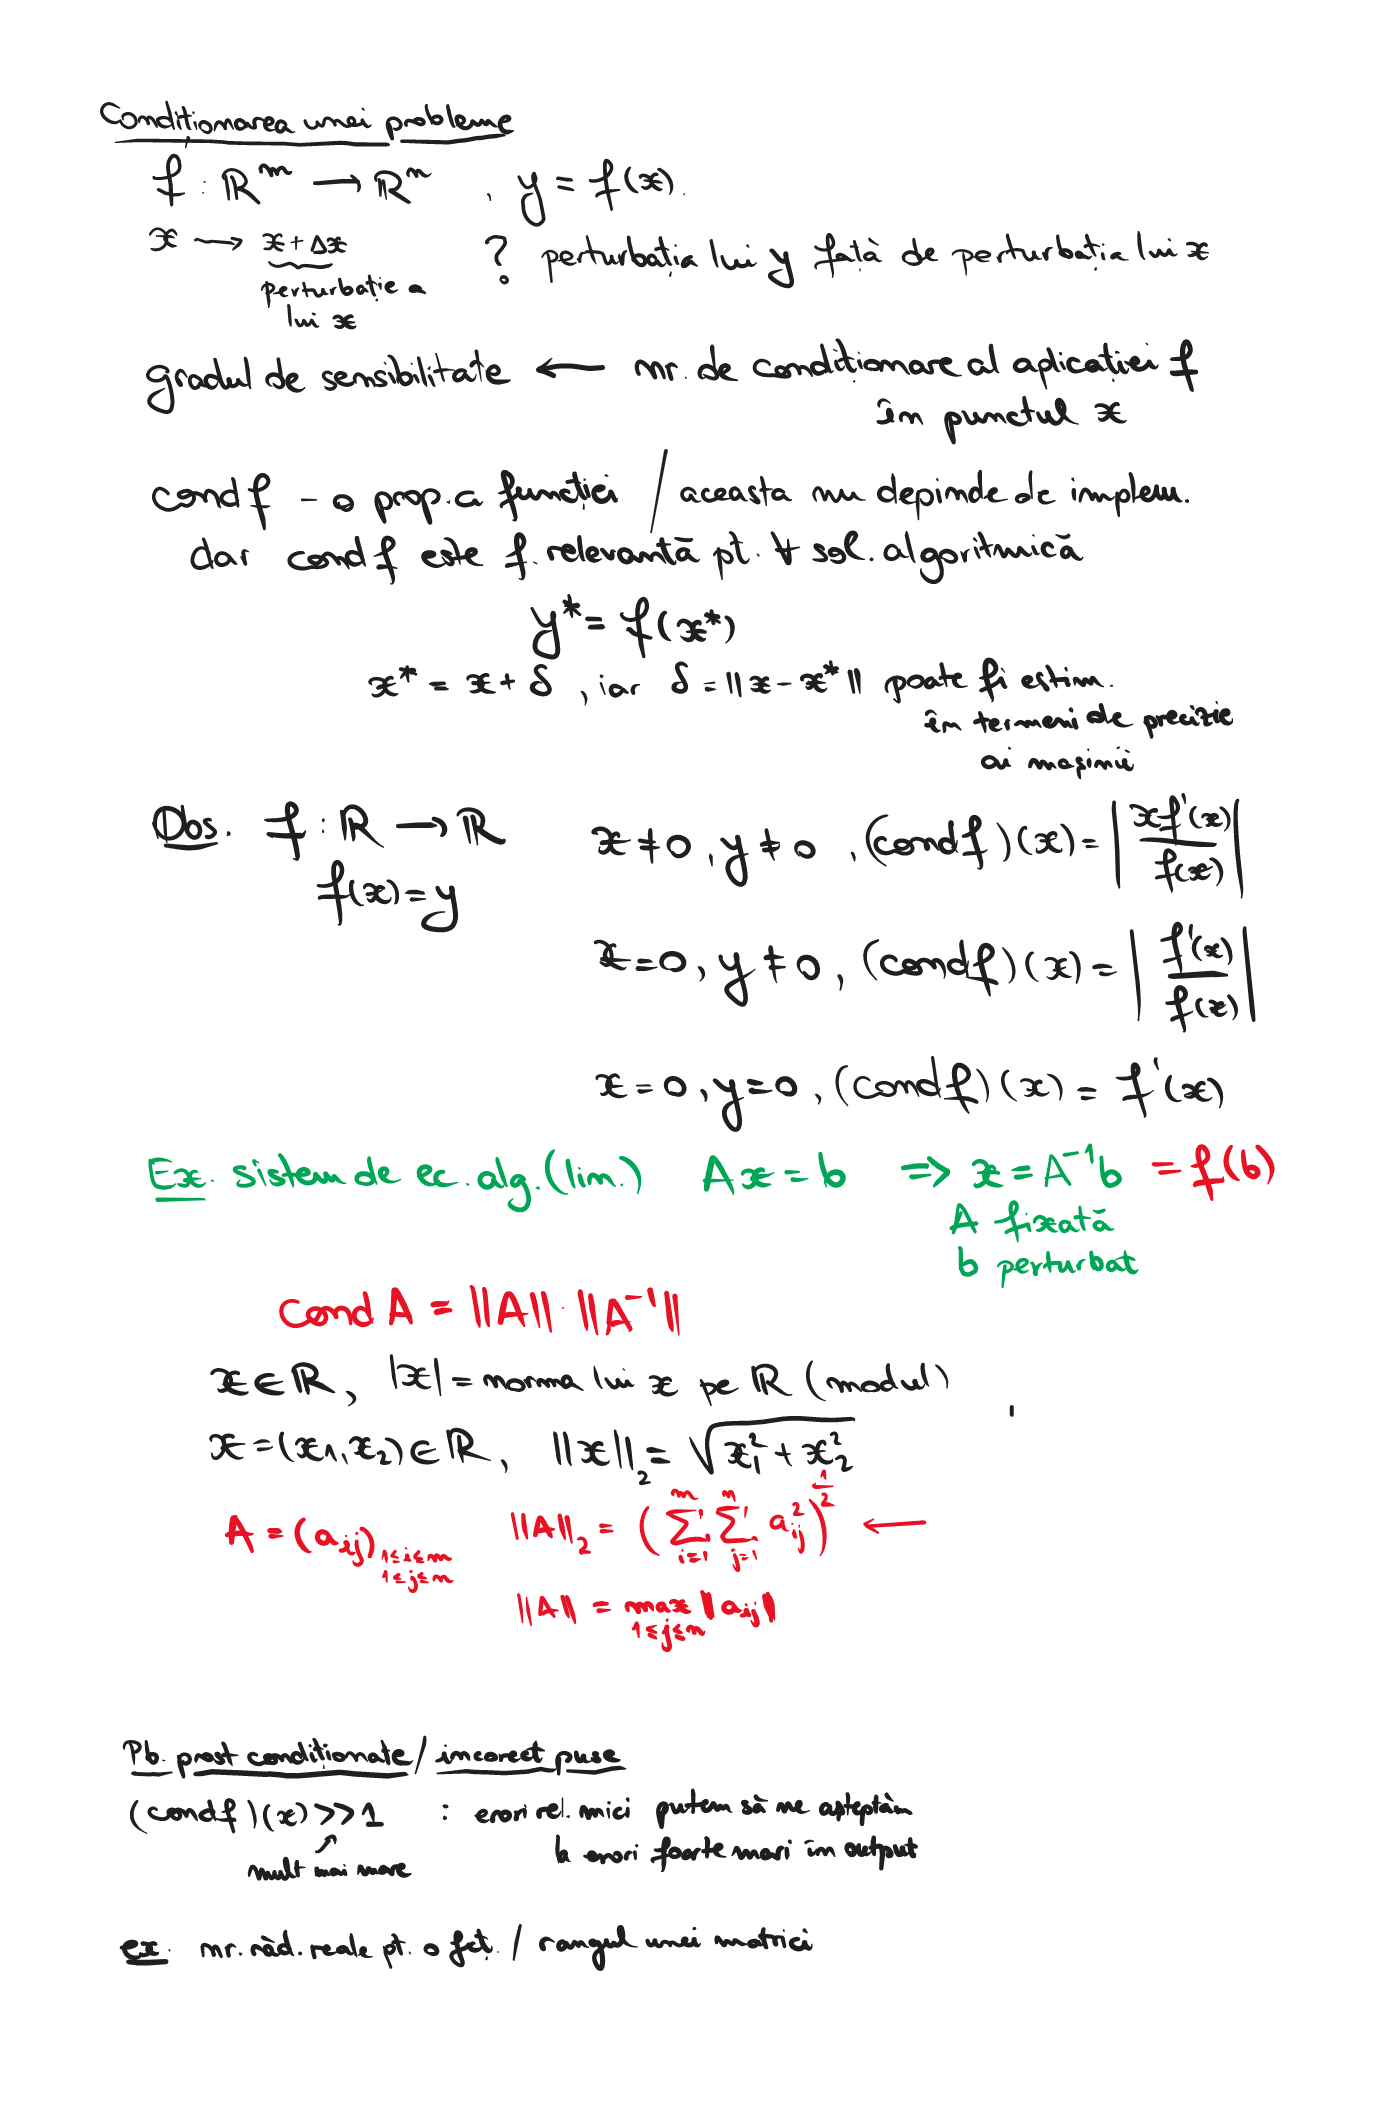 Condiționarea unei probleme
f : ℝᵐ → ℝⁿ , y = f(x).
x → x + Δx ? perturbația lui y față de perturbația lui x
perturbație a
lui x
gradul de sensibilitate ← nr. de condiționare al aplicației f
în punctul x
cond f – o prop. a funcției / aceasta nu depinde de implem.
dar cond f este f. relevantă pt. ∀ sol. algoritmică
y* = f(x*)
x* = x + δ , iar δ = ||x – x*|| poate fi estim.
în termeni de precizie
ai mașinii
Obs. f : ℝ → ℝ x ≠ 0 , y ≠ 0 , (cond f)(x) = | x f'(x) / f(x) |
f(x) = y
x = 0 , y ≠ 0 , (cond f)(x) = | f'(x) / f(x) |
x = 0 , y = 0 , (cond f)(x) = f'(x)
Ex. sistem de ec. alg. (lin.) Ax = b ⇒ x = A⁻¹b = f(b)
A fixată
b perturbat
Cond A = ||A|| · ||A⁻¹||
x ∈ ℝ, |x| = norma lui x pe ℝ (modul)
x = (x₁, x₂) ∈ ℝ, ||x||₂ = √(x₁² + x₂²)
A = (aᵢⱼ) 1≤i≤m 1≤j≤n ||A||₂ = ( Σᵢ₌₁ᵐ Σⱼ₌₁ⁿ aᵢⱼ² )^(1/2) ←
||A|| = max ||aᵢⱼ||
1≤j≤n
Pb. prost condiționate / incorect puse
(cond f)(x) >> 1 : erori rel. mici putem să ne așteptăm
mult mai mare la erori foarte mari în output
ex. nr. răd. reale pt. o fct. / rangul unei matrici